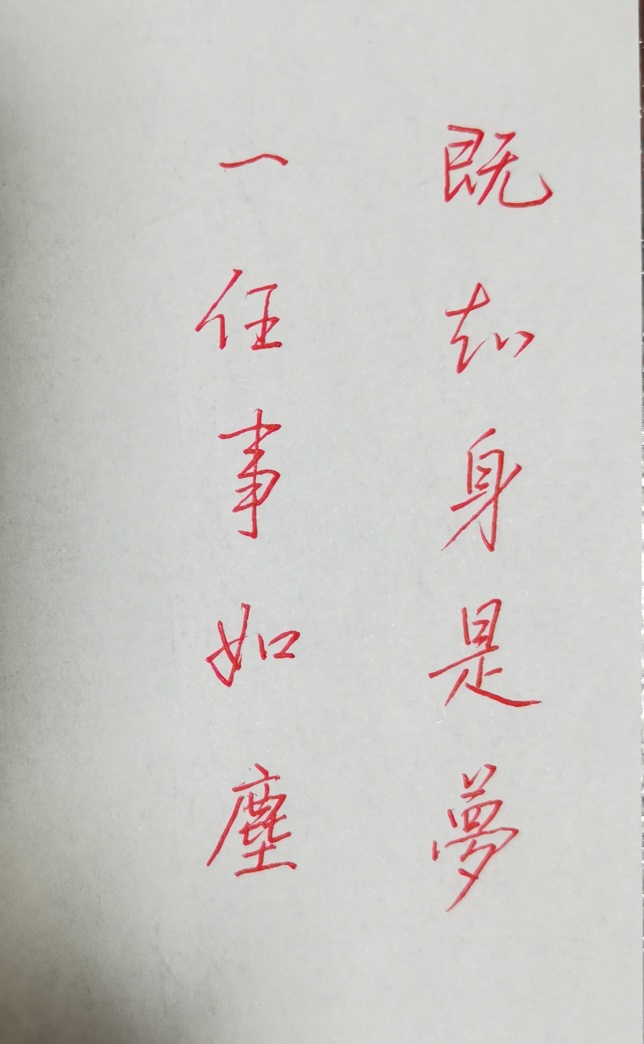 既知身是夢
一任事如塵